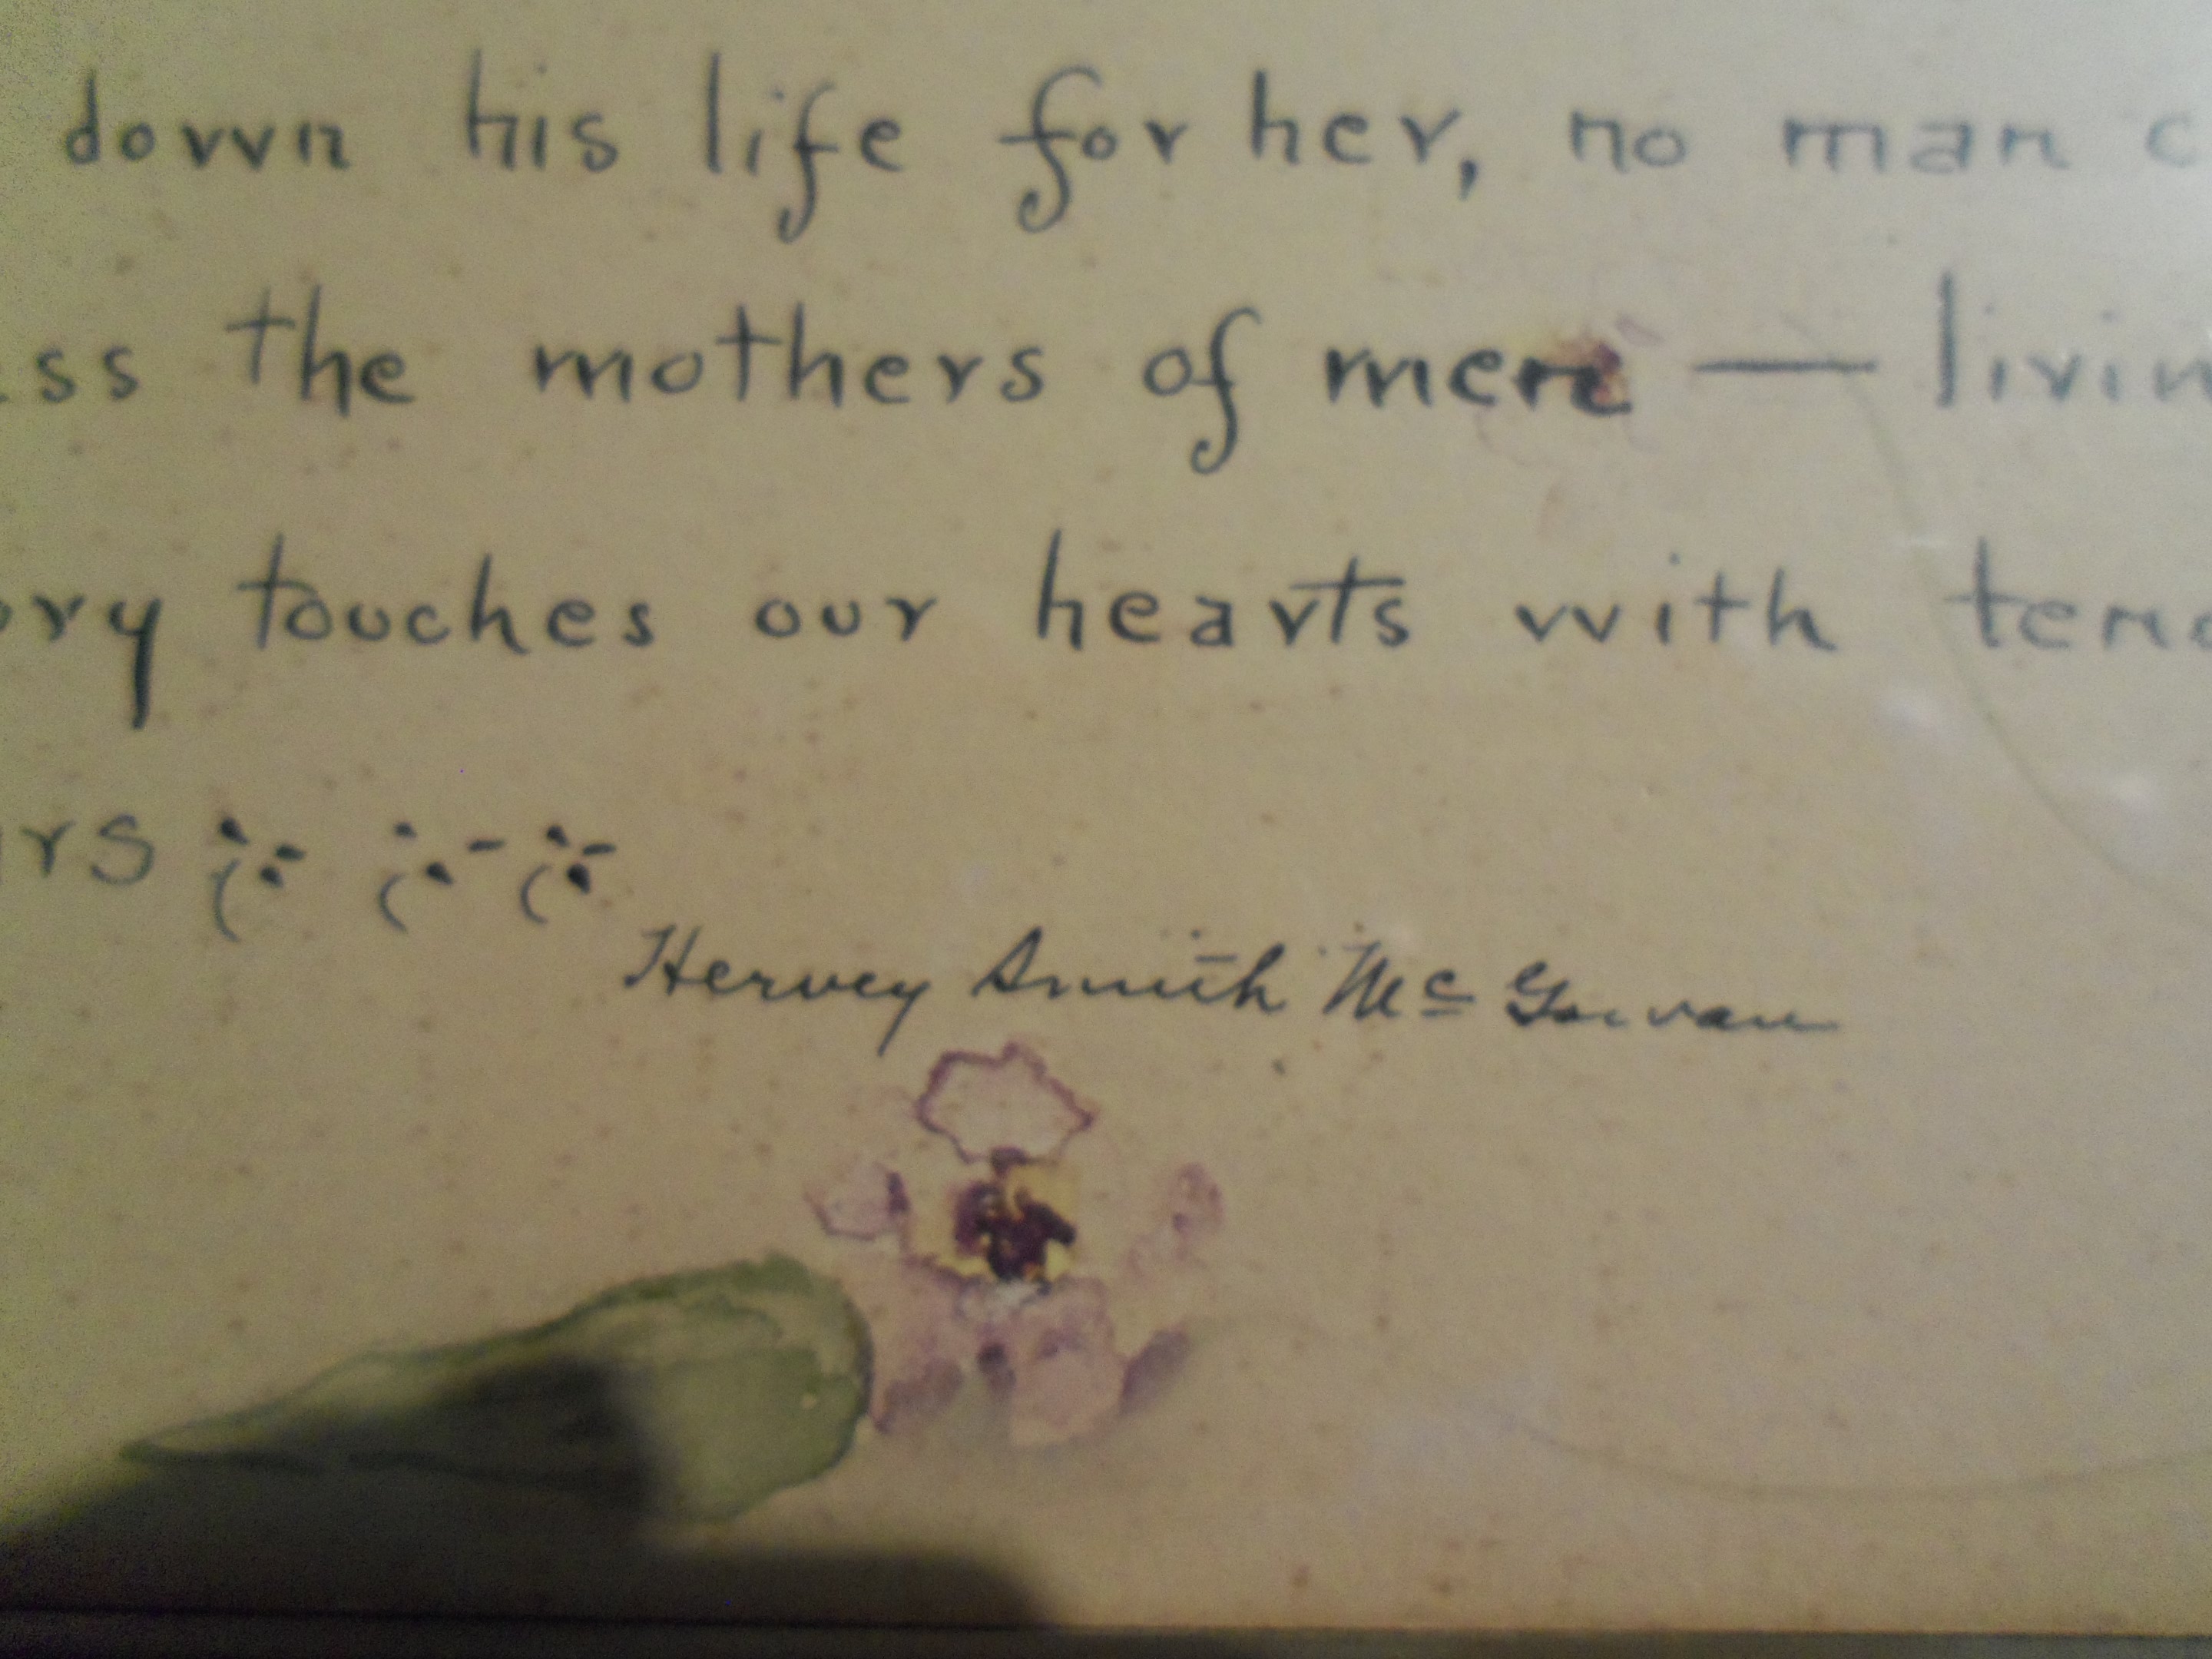 down his life for her, no man c
ss the mothers of men — livin
ory touches our hearts with tend
rs
Hervey Smith McCowan